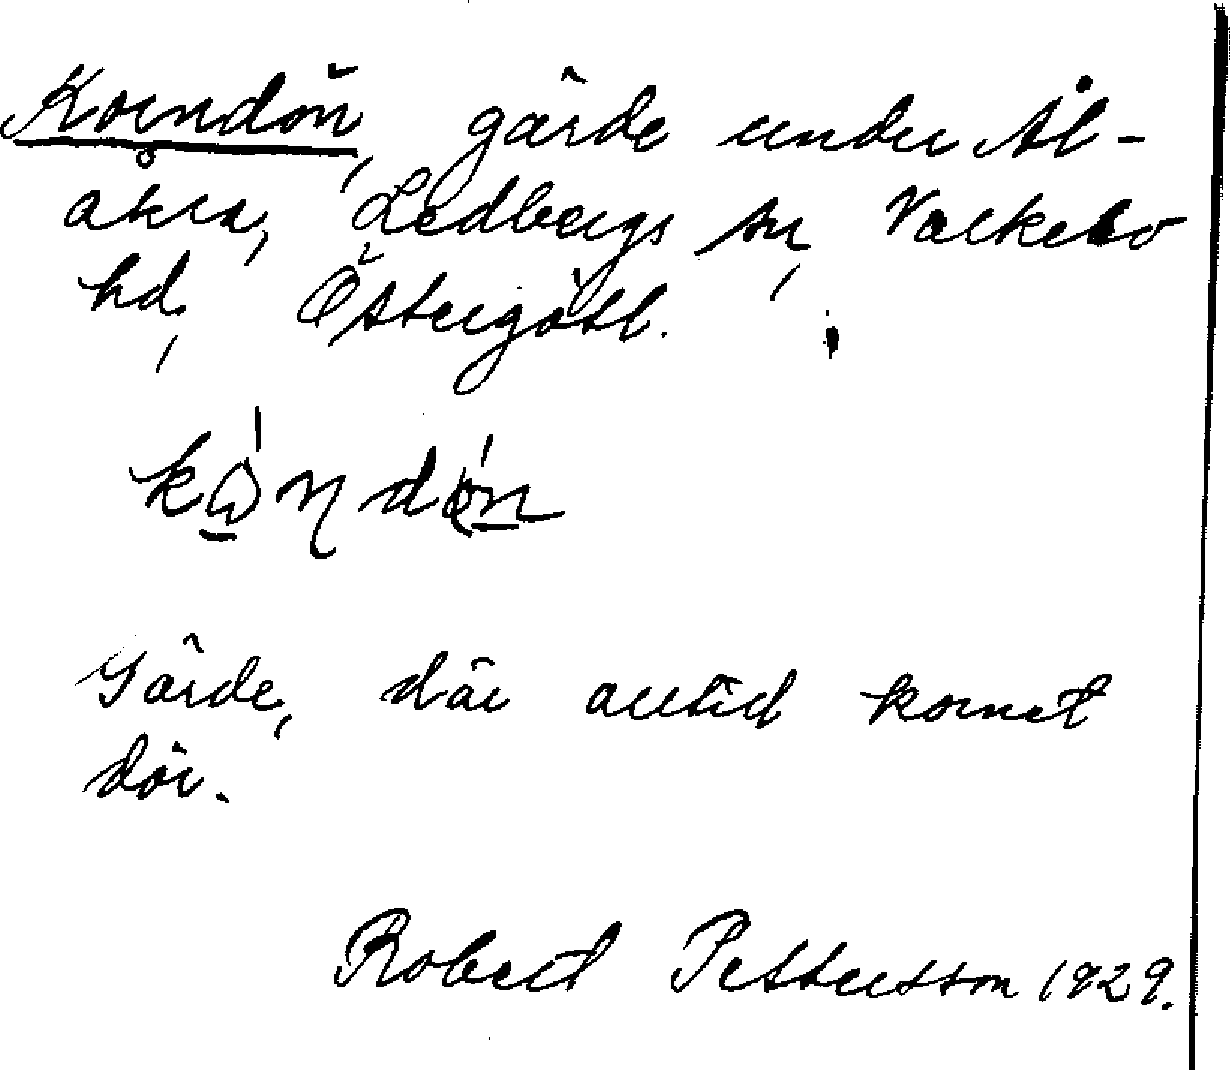 Korndön, gärde under Ål-
åkra, Ledbergs sn, Valkebo
hd, Östergötl.
Gärde, där alltid kornet
dör.
Robert Pettersson 1929.